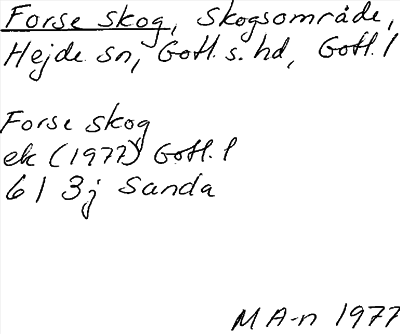 Forse skog, Skogsområde,
Hejde sn, Gotl. s. hd, Gotl. l
Forse skog
ek (1977) Gotl. l
6 I 3j Sanda
M A-n 1977